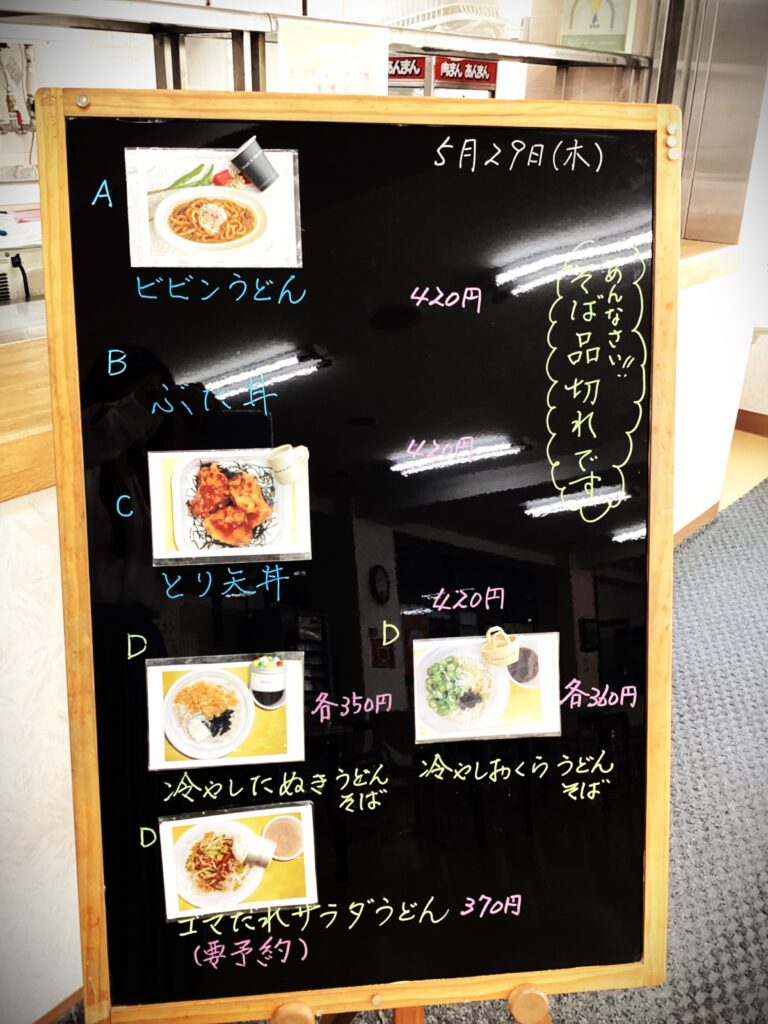 肉まん あんまん
5月29日(木)
A
ビビンうどん 420円
ごめんなさい!!
そば品切れです
B
ぶた丼
420円
C
とり天丼
420円
D
各350円
冷やしたぬきうどん
そば
D
各360円
冷やしおくらうどん
そば
D
ゴマだれサラダうどん 370円
(要予約)